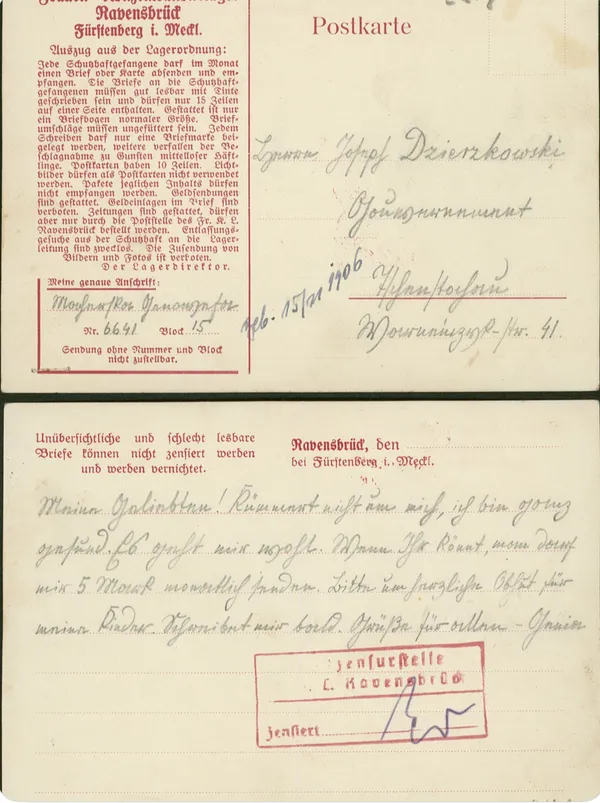 Ravensbrück
Fürstenberg i. Meckl.
Auszug aus der Lagerordnung:
Jede Schutzhaftgefangene darf im Monat
einen Brief oder Karte absenden und em-
pfangen. Die Briefe an die Schutzhaft-
gefangenen müssen gut lesbar mit Tinte
geschrieben sein und dürfen nur 15 Zeilen
auf einer Seite enthalten. Gestattet ist nur
ein Briefbogen normaler Größe. Brief-
umschläge müssen ungefüttert sein. Jedem
Schreiben darf nur eine Briefmarke bei-
gelegt werden, weitere verfallen der Be-
schlagnahme zu Gunsten mittelloser Häft-
linge. Postkarten haben 10 Zeilen. Licht-
bilder dürfen als Postkarten nicht verwendet
werden. Pakete jeglichen Inhalts dürfen
nicht empfangen werden. Geldsendungen
sind gestattet. Geldeinlagen im Brief sind
verboten. Zeitungen sind gestattet, dürfen
aber nur durch die Poststelle des Fr. K. L.
Ravensbrück bestellt werden. Entlassungs-
gesuche aus der Schutzhaft an die Lager-
leitung sind zwecklos. Die Zusendung von
Bildern und Fotos ist verboten.
Der Lagerdirektor.
Meine genaue Anschrift:
Macherska Genowefa
Nr. 6641 Block 15
Sendung ohne Nummer und Block
nicht zustellbar.
Postkarte
Herrn Joseph Dzierzkowski
Gouvernement
Tschenstochau
str. 41.
geb. 15/11 1906
Unübersichtliche und schlecht lesbare
Briefe können nicht zensiert werden
und werden vernichtet.
Ravensbrück, den
bei Fürstenberg i. Meckl.
Meine Geliebten! Kümmert nicht um mich, ich bin ganz
gesund. Es geht mir wohl. Wenn Ihr könnt, man darf
mir 5 Mark monatlich senden. Bitte um herzliche Obhut für
meine Kinder. Schreibet mir bald. Grüße für allen – Genia
Zensurstelle
L. Ravensbrück
zensiert